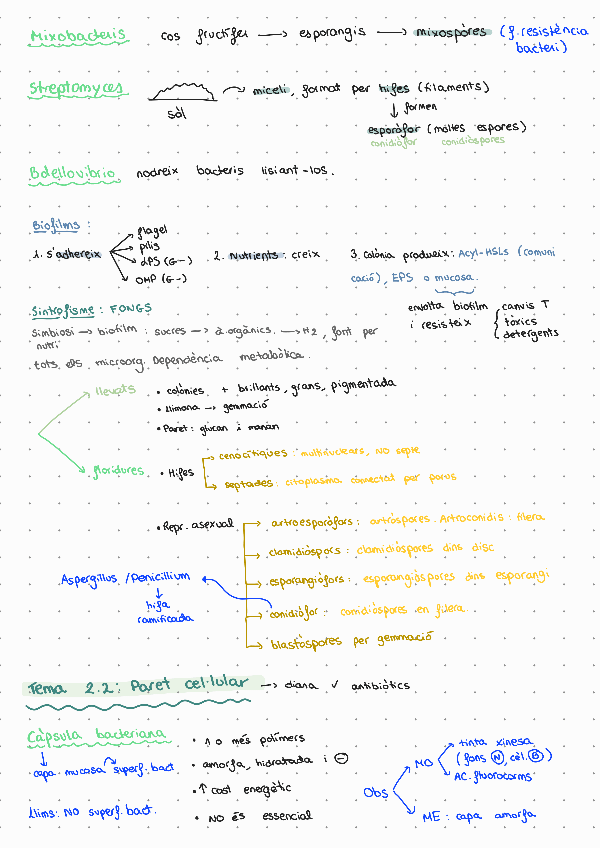 Mixobacteris cos fructífer → esporangis → mixospores (f. resistència
bacteri)
Streptomyces → miceli, format per hifes (filaments)
sòl ↓ formen
esporòfor (moltes espores)
conidiòfor conidiòspores
Bdellovibrio nodreix bacteris lisiant-los.
Biofilms:
1. s'adhereix → flagel
→ pilis
→ LPS (G-)
→ OMP (G-)
2. Nutrients: creix
3. colònia produeix: Acyl-HSLs (comuni
cació), EPS o mucosa.
envolta biofilm
i resisteix
canvis T
tòxics
detergents
Sintrofisme: FONGS
Simbiosi → biofilm: sucres → à.orgànics. → H2, font per
nutri
tots els microorg. Dependència metabòlica.
llevats
• colònies + brillants, grans, pigmentada
• llimona → gemmació
• Paret: glucan i manan
floridures
• Hifes
→ cenocítiques: multinuclears, NO septe
→ septades: citoplasma connectat per porus
• Repr. asexual
→ artroesporòfors: artròspores. Artroconidis: filera
→ clamidiòspors: clamidiòspores dins disc
→ esporangiòfors: esporangiòspores dins esporangi
→ conidiòfor: conidiòspores en filera
→ blastòspores per gemmació
Aspergillus / Penicillium
↓
hifa
ramificada
Tema 2.2: Paret cel·lular → diana √ antibiòtics
Càpsula bacteriana
↓
capa mucosa superf. bact.
llims: NO superf. bact.
• 1 o més polímers
• amorfa, hidratada i ⊖
• ↑ cost energètic
• NO és essencial
Obs
→ MO
→ tinta xinesa
(fons Ⓝ, cèl. Ⓑ)
→ AC. fluorocroms
→ ME: capa amorfa